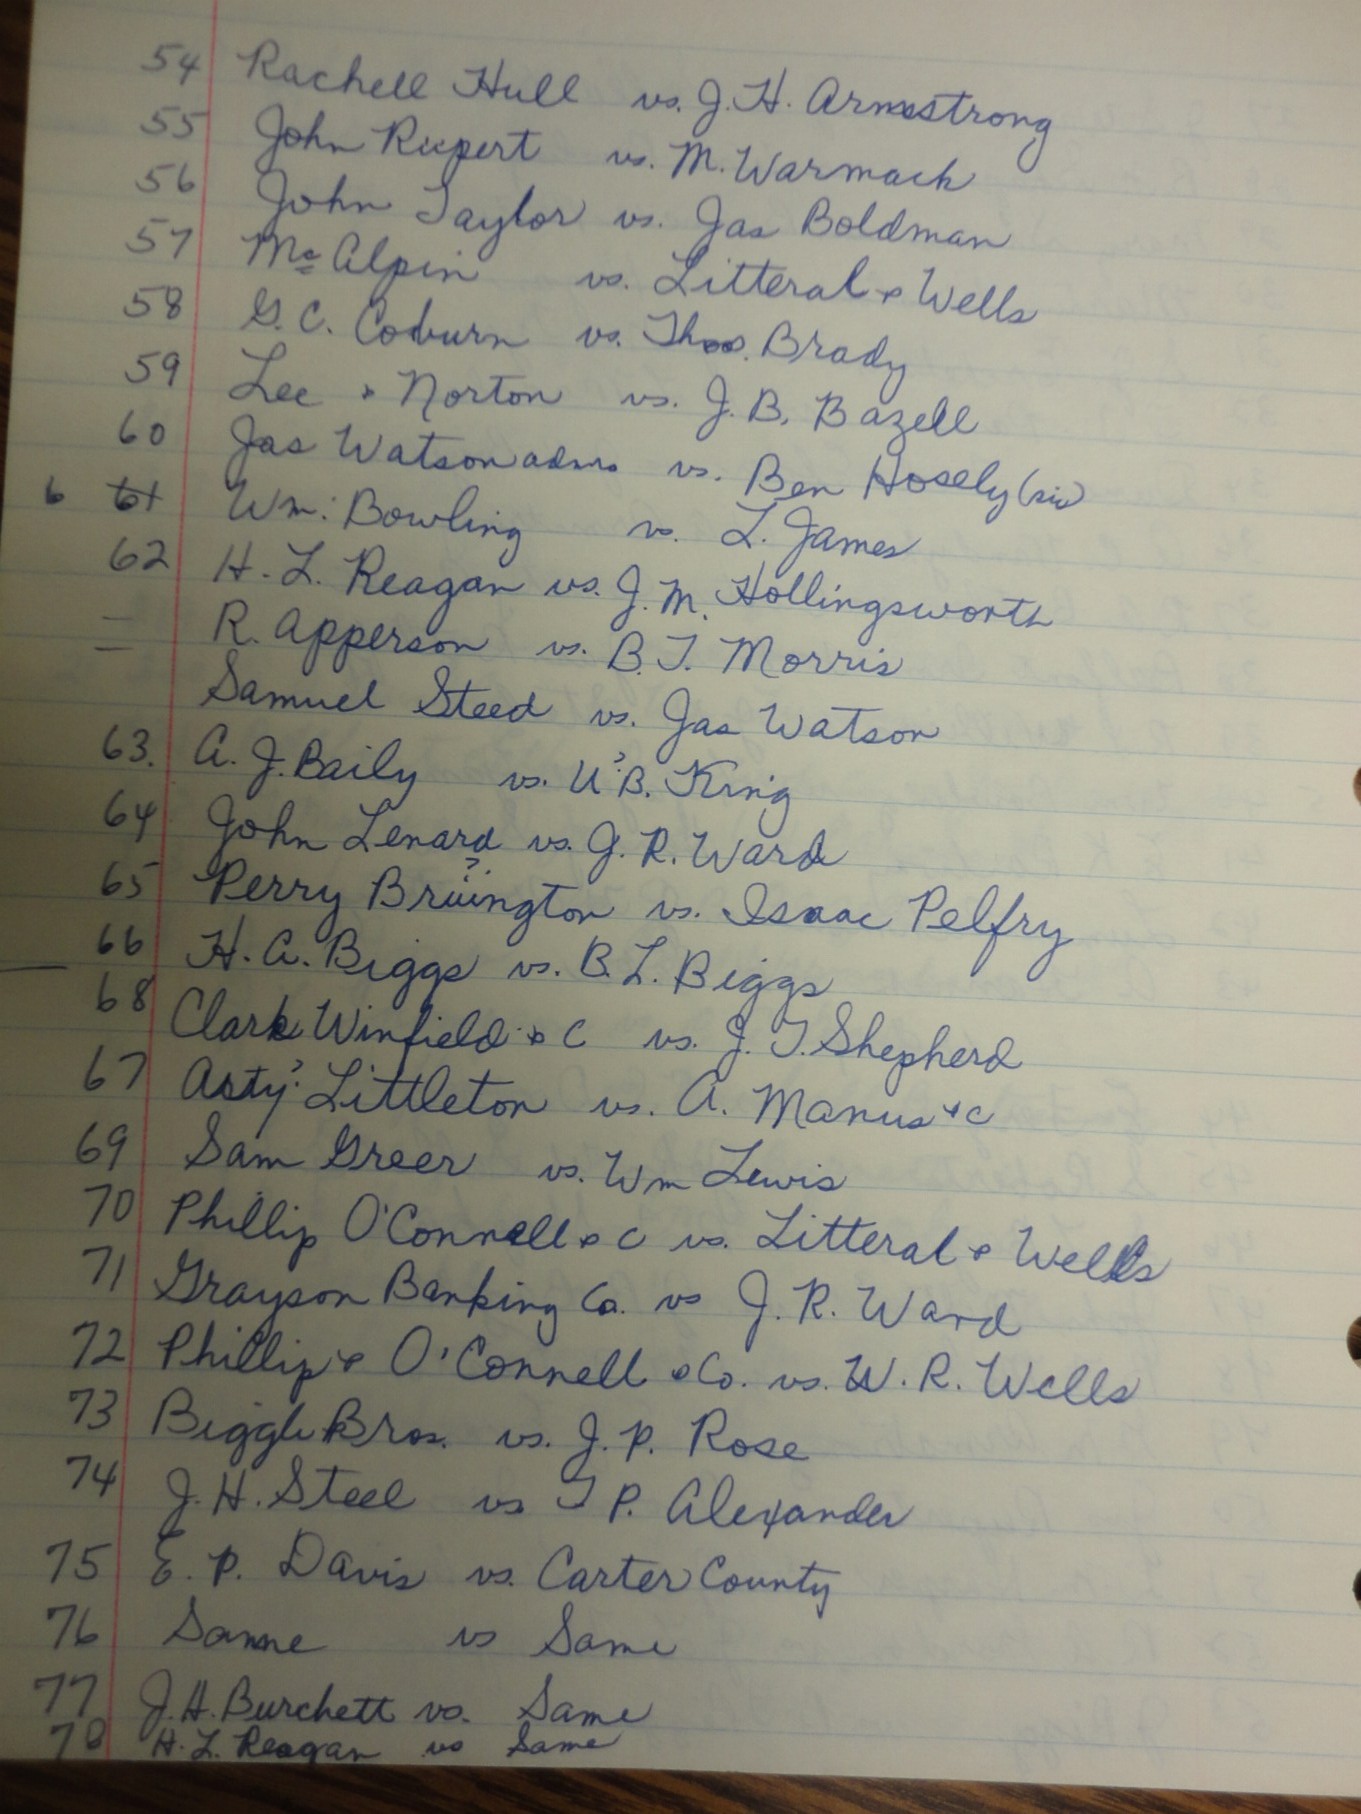 54 Rachell Hull vs. J. H. Armstrong
55 John Rupert vs. M. Warmack
56 John Taylor vs. Jas Boldman
57 Mc Alpin vs. Litteral & Wells
58 G. C. Coburn vs. Thos. Brady
59 Lee & Norton vs. J. B. Bazell
60 Jas Watson adms vs. Ben Hosely (sic)
6 61 Wm. Bowling vs. L. James
62 H. L. Reagan vs. J. M. Hollingsworth
— R. Apperson vs. B. T. Morris
— Samuel Steed vs. Jas Watson
63. A. J. Baily vs. U?B. King
64 John Lenard vs. J. R. Ward
65 Perry Bruington? vs. Isaac Pelfry
66 H. A. Biggs vs. B. L. Biggs
68 Clark Winfield & C vs. J. T. Shepherd
67 Asty? Littleton vs. A. Manus & C
69 Sam Greer vs. Wm Lewis
70 Phillip O'Connell & C vs. Litteral & Wells
71 Grayson Banking Co. vs J. R. Ward
72 Phillip & O'Connell & Co. vs. W. R. Wells
73 Biggle Bros. vs. J. P. Rose
74 J. H. Steel vs T P. Alexander
75 E. P. Davis vs. Carter County
76 Same vs Same
77 J. H. Burchett vs. Same
78 H. L. Reagan vs Same